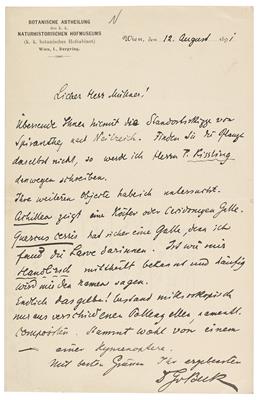 N
BOTANISCHE ABTHEILUNG
des k. k.
NATURHISTORISCHEN HOFMUSEUMS
(k. k. botanisches Hofcabinet)
Wien, I., Burgring.
Wien, den 12. August 1891
Lieber Herr
Übersende Ihnen hiemit die Standortsskizze von
Spiranthes nach Neilreich. Finden Sie die Pflanze
daselbst nicht, so werde ich Herrn P. Kissling
deswegen schreiben.
Ihre weiteren Objecte habe ich untersucht.
Achillea zeigt eine Käfer oder Cecidomyen Galle.
Quercus cerris hat sicher eine Galle, denn ich
fand die Larve darinnen. Ist wie mir
Handlirsch mittheilt bekannt und häufig
wird mir den Namen sagen.
Endlich das gelbe! bestand mikroskopisch
nur aus verschiedenen Pollenzellen, namentl.
Compositen. Stammt wohl von einem
einer Hymenoptere.
Mit besten Grüssen Ihr ergebenster
Dr GvBeck